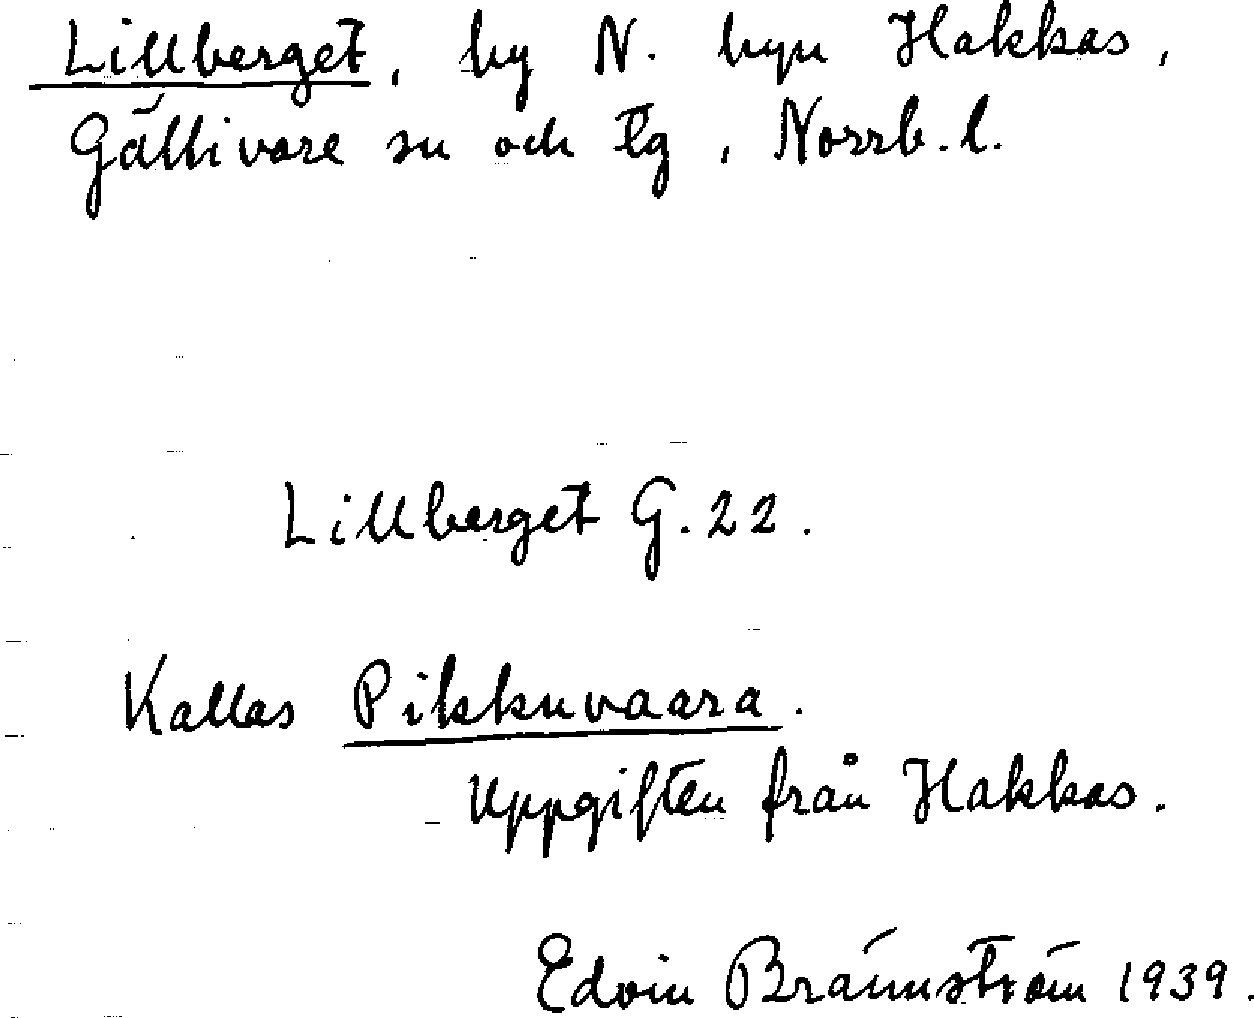 Lillberget, by N. byn Hakkas,
Gällivare sn och tg, Norrb. l.
Lillberget G. 22.
Kallas Pikkuvaara.
Uppgiften från Hakkas.
Edvin Brännström 1939.